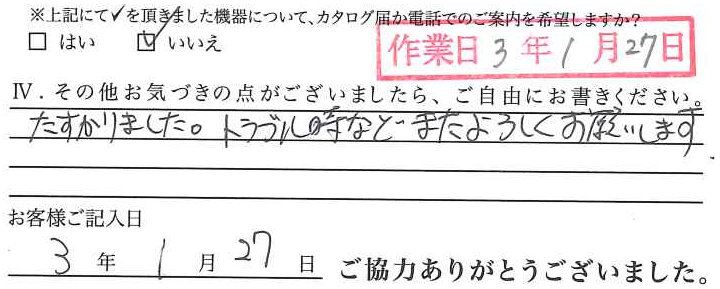 ※上記にて✓を頂きました機器について、カタログ届か電話でのご案内を希望しますか？
□ はい ☑ いいえ
作業日 3 年 1 月 27 日
Ⅳ．その他お気づきの点がございましたら、ご自由にお書きください。
たすかりました。トラブル時など またよろしくお願いします
お客様ご記入日
3 年 1 月 27 日 ご協力ありがとうございました。